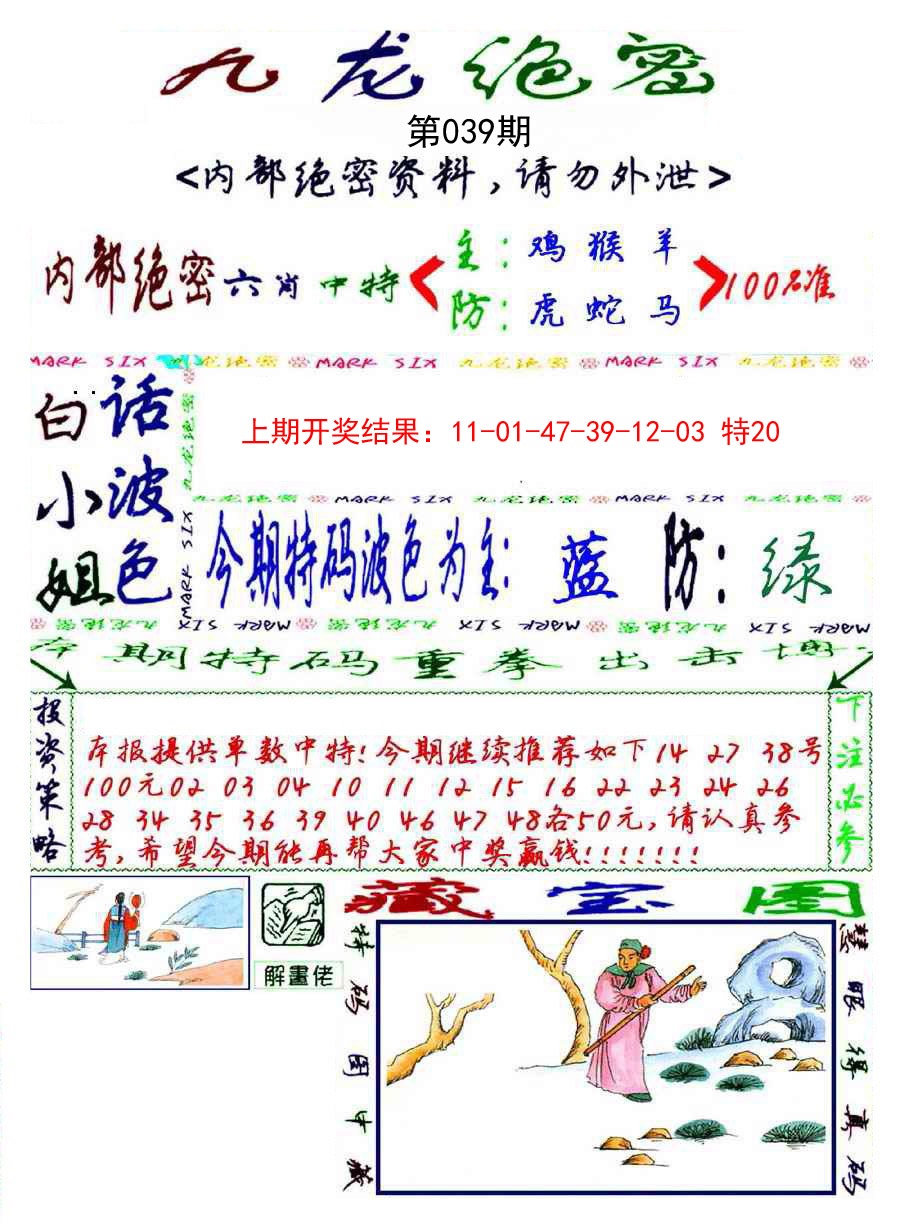 九龙绝密
第039期
<内部绝密资料,请勿外泄>
内部绝密六肖中特
主:鸡猴羊
防:虎蛇马
100%准
MARK SIX 九龙绝密 MARK SIX 九龙绝密 MARK SIX 九龙绝密
白话
小波
姐色
九龙绝密
MARK SIX
上期开奖结果：11-01-47-39-12-03 特20
九龙绝密 MARK SIX 九龙绝密 MARK SIX 九龙绝密
今期特码波色为主:蓝 防:绿
九龙绝密 MARK SIX 九龙绝密 MARK SIX 九龙绝密 MARK SIX
本期特码重拳出击
投资策略
本报提供单数中特!今期继续推荐如下14 27 38号
100元02 03 04 10 11 12 15 16 22 23 24 26
28 34 35 36 39 40 46 47 48各50元,请认真参
考,希望今期能再帮大家中奖赢钱!!!!!!!
下注必参
解畫佬
藏宝图
特码图中藏
慧眼得真码